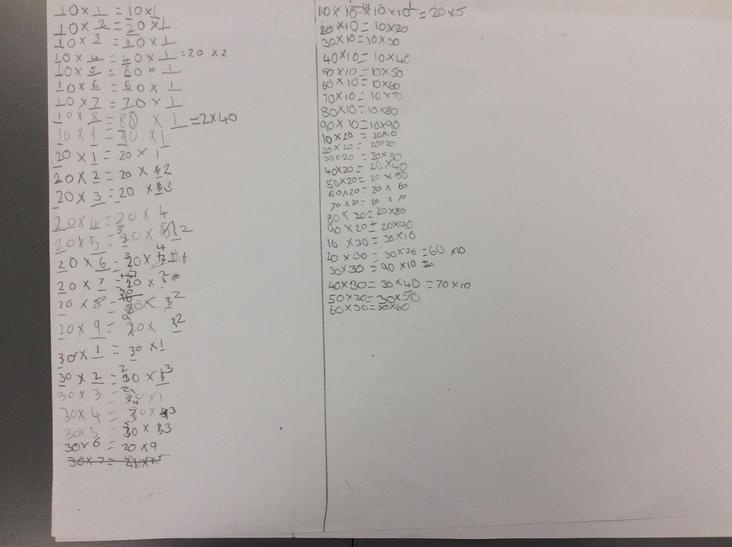 10 × 1 = 10 × 1
10 × 2 = 20 × 1
10 × 3 = 30 × 1
10 × 4 = 40 × 1 = 20 × 2
10 × 5 = 50 × 1
10 × 6 = 60 × 1
10 × 7 = 70 × 1
10 × 8 = 80 × 1 = 2 × 40
10 × 9 = 90 × 1
20 × 1 = 20 × 1
20 × 2 = 20 × 2
20 × 3 = 20 × 3
20 × 4 = 20 × 4
20 × 5 =
20 × 6 =
20 × 7 =
20 × 8 =
20 × 9 =
30 × 1 = 30 × 1
30 × 2 =
30 × 3 =
30 × 4 =
30 × 5 =
30 × 6 = 20 × 9
10 × 10 = 10 × 10 = 20 × 5
20 × 10 = 10 × 20
30 × 10 = 10 × 30
40 × 10 = 10 × 40
50 × 10 = 10 × 50
60 × 10 = 10 × 60
70 × 10 = 10 × 70
80 × 10 = 10 × 80
90 × 10 = 10 × 90
10 × 20 = 20 × 10
20 × 20 = 20 × 20
30 × 20 = 20 × 30
40 × 20 = 20 × 40
50 × 20 = 20 × 50
60 × 20 = 20 × 60
70 × 20 = 20 × 70
80 × 20 = 20 × 80
90 × 20 = 20 × 90
10 × 30 = 30 × 10
20 × 30 = 30 × 20 = 60 × 10
30 × 30 = 90 × 10
40 × 30 = 30 × 40 = 70 × 10
50 × 30 = 30 × 50
60 × 30 = 30 × 60